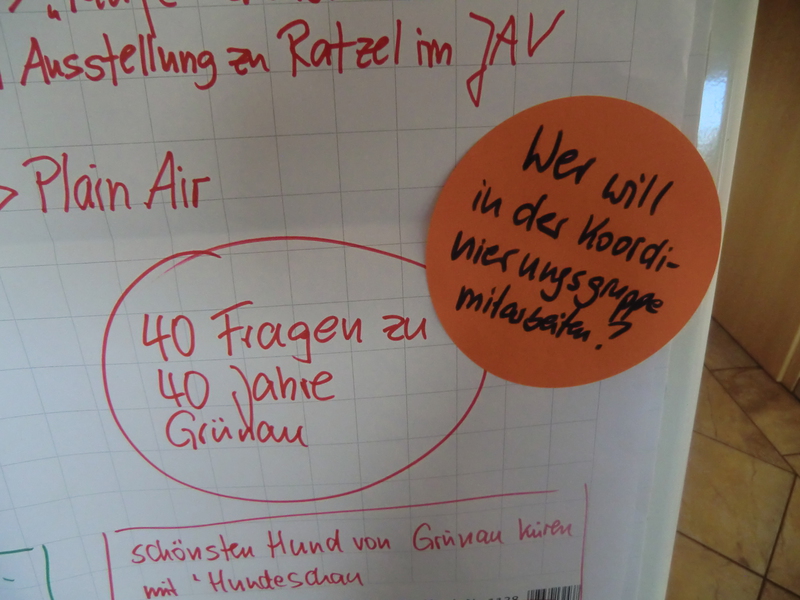 Ausstellung zu Ratzel im JAV
> Plain Air
Wer will
in der Koordi-
nierungsgruppe
mitarbeiten?
40 Fragen zu
40 Jahre
Grünau
schönsten Hund von Grünau küren
mit 'Hundeschau